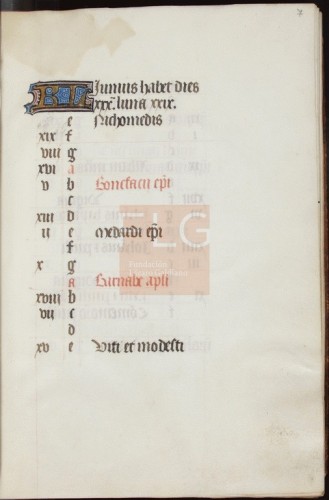 7
KL Junius habet dies
xxx. luna xxix.
e Nichomedis
xix f
viii g
xvi a
v b Bonefacii epi
c
xiii d
ii e Medardi epi
f
x g
a Barnabe apli
xviii b
vii c
d
xv e Viti et modesti
FLG
Fundación